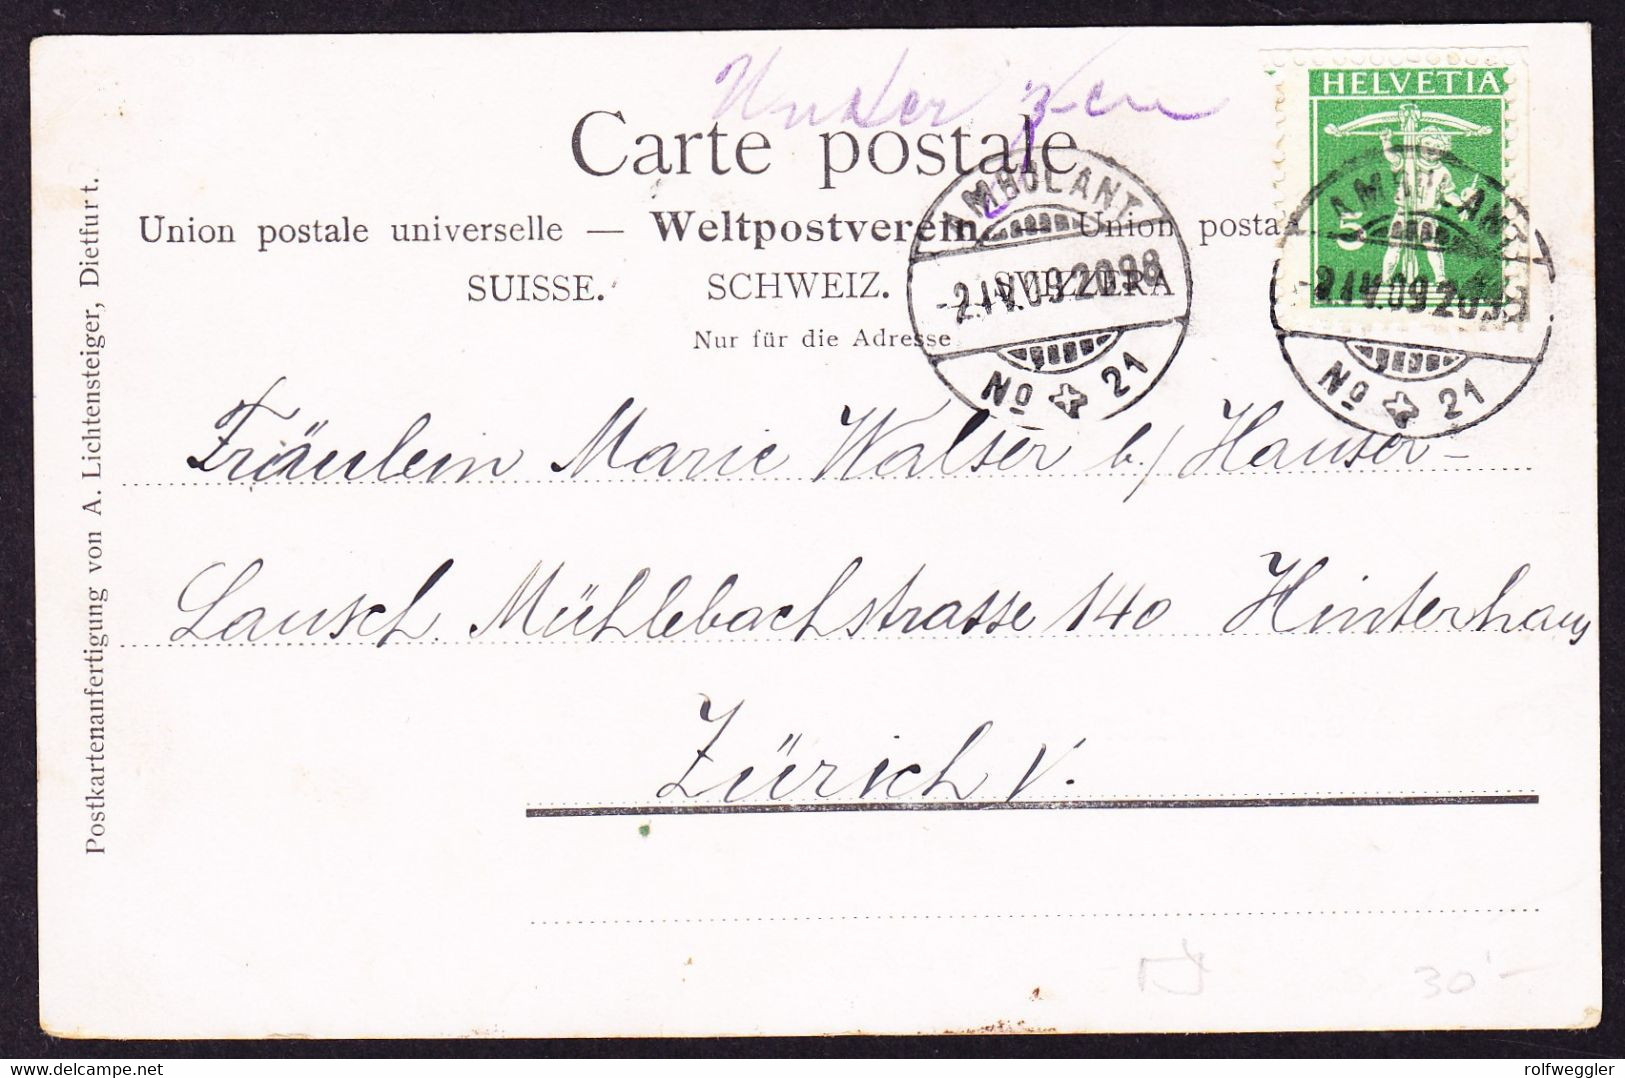 Carte postale
Union postale universelle — Weltpostverein Union posta
SUISSE. SCHWEIZ. SVIZZERA
Nur für die Adresse
HELVETIA
5
AMBULANT
-2.IV.09 2098
No 21
AMBULANT
-2.IV.09 20
No 21
Fräulein Marie Walser b/ Hauser-
Lausch. Mühlebachstrasse 140 Hinterhaus
Zürich V.
Postkartenanfertigung von A. Lichtensteiger, Dietfurt.
30.-
delcampe.net
rolfweggler